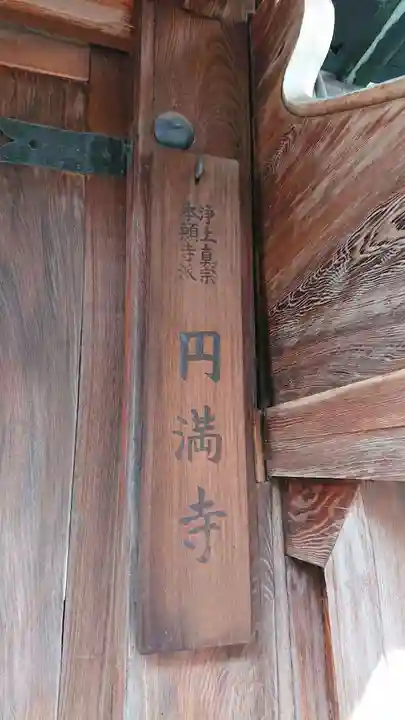 浄土真宗
本願寺派
円満寺